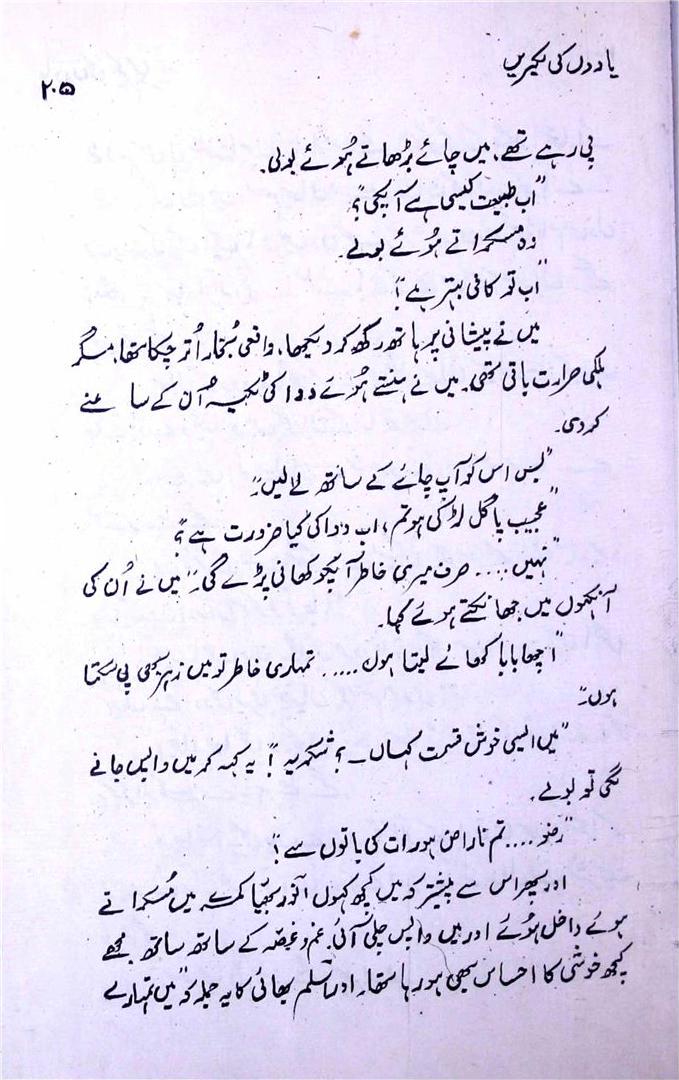 یادوں کی لکیریں
۲۰۵
پی رہے تھے، میں چائے بڑھاتے ہُوئے بولی۔
"اب طبیعت کیسی ہے آپکی؟"
وہ مسکراتے ہُوئے بولے۔
"اب تو کافی بہتر ہے"!
میں نے پیشانی پر ہاتھ رکھ کر دیکھا، واقعی بُخار اُتر چکا تھا، مگر
ہلکی حرارت باقی تھی۔ میں نے ہنستے ہُوئے دوا کی ٹکیہ اُن کے سامنے
کر دی۔
"بس اس کو آپ چائے کے ساتھ لے لیں۔"
"عجیب پاگل لڑکی ہو تم، اب دوا کی کیا ضرورت ہے"؟
"نہیں .... صرف میری خاطر آپکو کھانی پڑے گی۔" میں نے اُن کی
آنکھوں میں جھانکتے ہوئے کہا۔
"اچھا بابا کھائے لیتا ہوں ..... تمہاری خاطر تو میں زہر بھی پی سکتا
ہوں۔"
"میں ایسی خوش قسمت کہاں ــ؟ شکریہ"! یہ کہہ کر میں واپس جانے
لگی تو بولے۔
"رضو .... تم ناراض ہو رات کی باتوں سے"؟
اور پھر اس سے پیشتر کہ میں کچھ کہوں انور بھیّا کمرے میں مُسکراتے
ہوئے داخل ہُوئے اور میں واپس چلی آئی۔ غم و غصّہ کے ساتھ ساتھ مجھے
کچھ خوشی کا احساس بھی ہو رہا تھا۔ اور اسلم بھائی کا یہ جملہ کہ "میں تمہارے